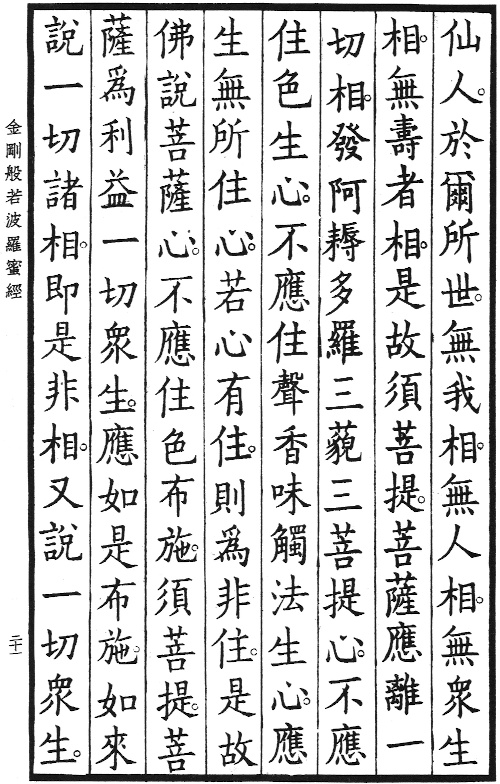 仙人。於爾所世。無我相。無人相。無眾生
相。無壽者相。是故須菩提。菩薩應離一
切相。發阿耨多羅三藐三菩提心。不應
住色生心。不應住聲香味觸法生心。應
生無所住心。若心有住。則為非住。是故
佛說菩薩心。不應住色布施。須菩提。菩
薩為利益一切眾生。應如是布施。如來
說一切諸相。即是非相。又說一切眾生。
金剛般若波羅蜜經
二十一